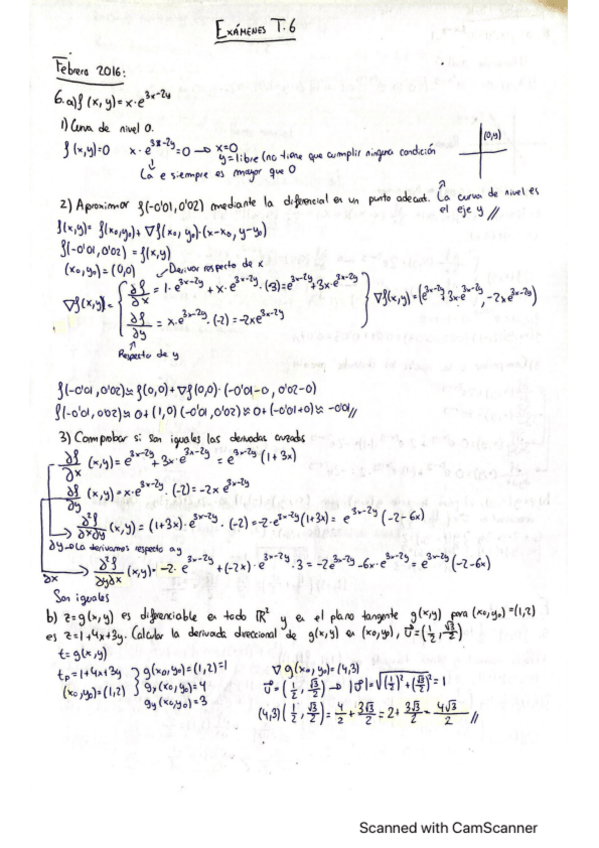 EXÁMENES T.6
Febrero 2016:
6. a) f(x,y)=x·e^{3x-2y}
1) Curva de nivel 0.
f(x,y)=0 x·e^{3x-2y}=0 → x=0
y=libre (no tiene que cumplir ninguna condición
↓
La e siempre es mayor que 0
(0,y)
2) Aproximar f(-0'01,0'02) mediante la diferencial en un punto adecuad. La curva de nivel es
el eje y //
f(x,y)= f(x0,y0)+∇f(x0,y0)·(x-x0, y-y0)
f(-0'01,0'02)=f(x,y)
(x0,y0)=(0,0) Derivar respecto de x
∇f(x,y)= { ∂f/∂x = 1·e^{3x-2y}+x·e^{3x-2y}·(3)=e^{3x-2y}+3x·e^{3x-2y} } ∇f(x,y)=(e^{3x-2y}+3x·e^{3x-2y}, -2xe^{3x-2y})
∂f/∂y = x·e^{3x-2y}·(-2)=-2xe^{3x-2y}
Respecto de y
f(-0'01,0'02)≈f(0,0)+∇f(0,0)·(-0'01-0, 0'02-0)
f(-0'01,0'02)≈0+(1,0)(-0'01,0'02)≈0+(-0'01+0)≈-0'01//
3) Comprobar si son iguales las derivadas cruzadas
∂f/∂x (x,y)=e^{3x-2y}+3x·e^{3x-2y}=e^{3x-2y}(1+3x)
∂f/∂y (x,y)=x·e^{3x-2y}·(-2)=-2x e^{3x-2y}
∂²f/∂x∂y (x,y)=(1+3x)·e^{3x-2y}·(-2)=-2·e^{3x-2y}(1+3x)=e^{3x-2y}(-2-6x)
∂y→Lo derivamos respecto a y
∂x → ∂²f/∂y∂x (x,y)=-2·e^{3x-2y}+(-2x)·e^{3x-2y}·3=-2e^{3x-2y}-6x·e^{3x-2y}=e^{3x-2y}(-2-6x)
Son iguales
b) z=g(x,y) es diferenciable en todo ℝ² y es el plano tangente g(x,y) para (x0,y0)=(1,2)
es z=1+4x+3y. Calcular la derivada direccional de g(x,y) en (x0,y0), v̄=(1/2, √3/2)
t=g(x,y)
tp=1+4x+3y } g(x0,y0)=(1,2)=1
(x0,y0)=(1,2) gx(x0,y0)=4
gy(x0,y0)=3
∇g(x0,y0)=(4,3)
v̄=(1/2, √3/2) → |v̄|=√((1/2)²+(√3/2)²)=1
(4,3)(1/2, √3/2)=4/2+3√3/2=2+3√3/2=4√3/2 //
Scanned with CamScanner